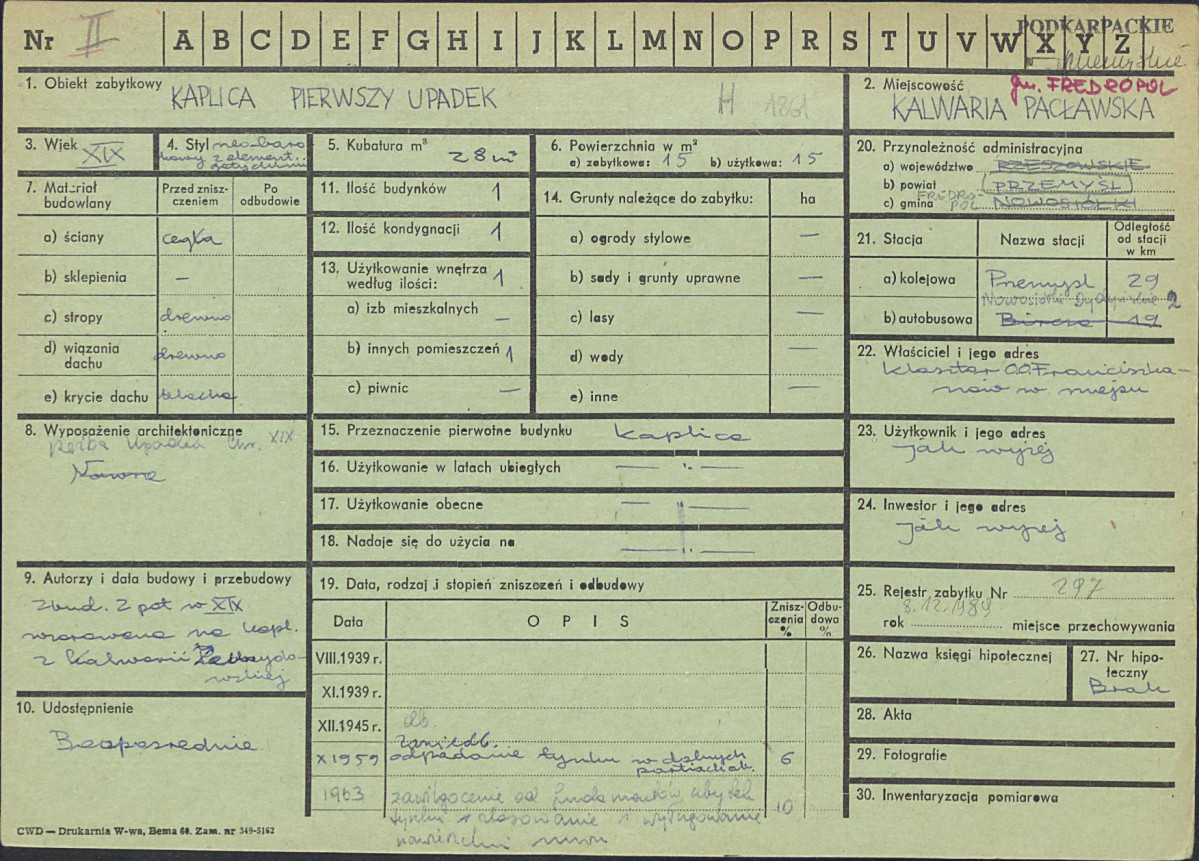 Nr II A B C D E F G H I J K L M N O P R S T U V W X Y Z
PODKARPACKIE
1. Obiekt zabytkowy
KAPLICA PIERWSZY UPADEK H 1861
2. Miejscowość gm. FREDROPOL
KALWARIA PACŁAWSKA
3. Wiek XIX
4. Styl neo-baro
kowy z element.
5. Kubatura m³ 28 m³
6. Powierzchnia w m²
a) zabytkowa: 15 b) użytkowa: 15
20. Przynależność administracyjna
a) województwo RZESZOWSKIE
b) powiat PRZEMYŚL
c) gmina FREDRO-
POL NOWOSIÓŁKI
7. Materiał
budowlany
Przed znisz-
czeniem
Po
odbudowie
a) ściany cegła
b) sklepienia —
c) stropy drewno
d) wiązania
dachu drewno
e) krycie dachu blacha
11. Ilość budynków 1
12. Ilość kondygnacji 1
13. Użytkowanie wnętrza
według ilości: 1
a) izb mieszkalnych —
b) innych pomieszczeń 1
c) piwnic —
14. Grunty należące do zabytku: ha
a) ogrody stylowe —
b) sady i grunty uprawne —
c) lasy —
d) wody —
e) inne —
21. Stacja Nazwa stacji Odległość
od stacji
w km
a) kolejowa Przemyśl 29
Nowosiółki Dydyńskie 2
b) autobusowa Bircza 19
22. Właściciel i jego adres
Klasztor OO Franciszka-
nów w miejscu
8. Wyposażenie architektoniczne
Rzeźba Upadek Chr. XIX
Nowe
15. Przeznaczenie pierwotne budynku kaplica
16. Użytkowanie w latach ubiegłych — " —
17. Użytkowanie obecne — " —
18. Nadaje się do użycia na — " —
23. Użytkownik i jego adres
jak wyżej
24. Inwestor i jego adres
jak wyżej
9. Autorzy i data budowy i przebudowy
zbud. 2 poł w XIX
wzorowana na kapl.
z Kalwarii Zebrzydo-
wskiej
10. Udostępnienie
Bezpośrednie
19. Data, rodzaj i stopień zniszczeń i odbudowy
Data OPIS Znisz-
czenia
% Odbu-
dowa
%
VIII.1939 r.
XI.1939 r.
XII.1945 r. db.
zaniedb.
X 1959 odpadanie tynku w dolnych
partiach 6
1963 zawilgocenie od fundamentów, ubytek
tynku 10
nawierzchni muru
25. Rejestr zabytku Nr 297
8.12.1989
rok miejsce przechowywania
26. Nazwa księgi hipotecznej
27. Nr hipo-
teczny
Brak
28. Akta
29. Fotografie
30. Inwentaryzacja pomiarowa
CWD — Drukarnia W-wa, Bema 60. Zam. nr 349-5162